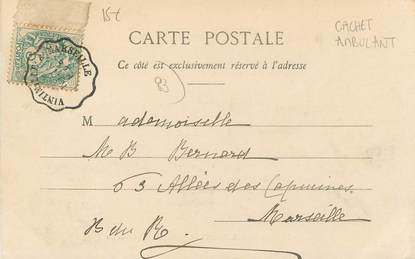 15€
CACHET
AMBULANT
CARTE POSTALE
Ce côté est exclusivement réservé à l'adresse
83
MARSEILLE
Mademoiselle
M B Bernard
63 Allées des Capucines
Marseille
B du R.